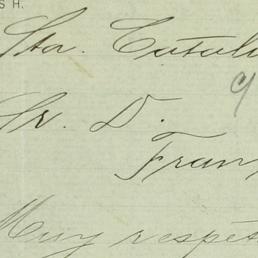 S H.
Sta. Catal
Sr. D.
Fran
Muy respet